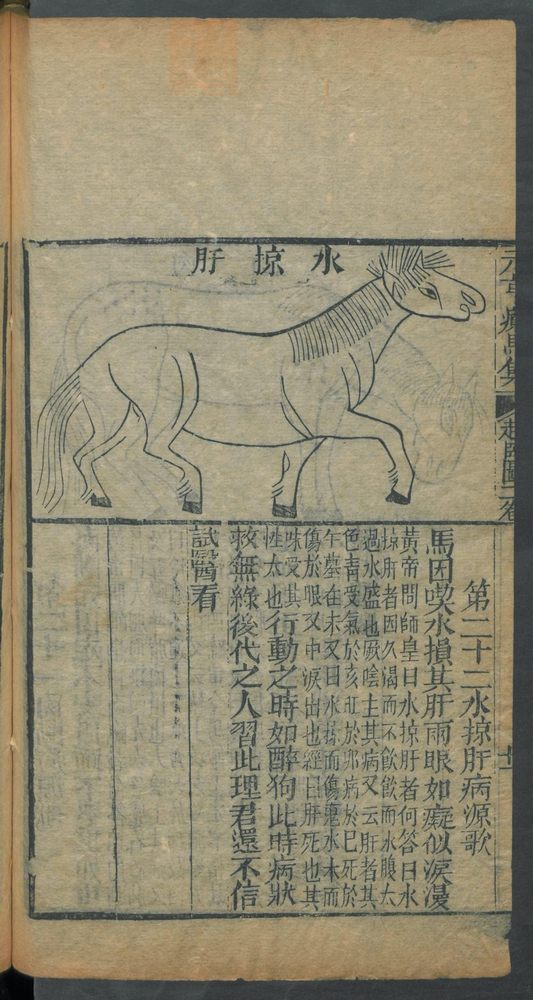 水掠肝
第二十二水掠肝病源歌
馬因喫水損其肝兩眼如癡似淚漫
黃帝問師皇曰水掠肝者何答曰水
掠肝者因久渴而不飲飲而水腹太
過水盛也厥陰主其病又云肝者其
色青受氣於亥旺於卯病於巳死於
午墓在未又曰水掠而傷毫水木而
傷於眼又中淚出也經曰肝死也其
味受其
性太也行動之時如醉狗此時病狀
救無緣後代之人習此理君還不信
試醫看